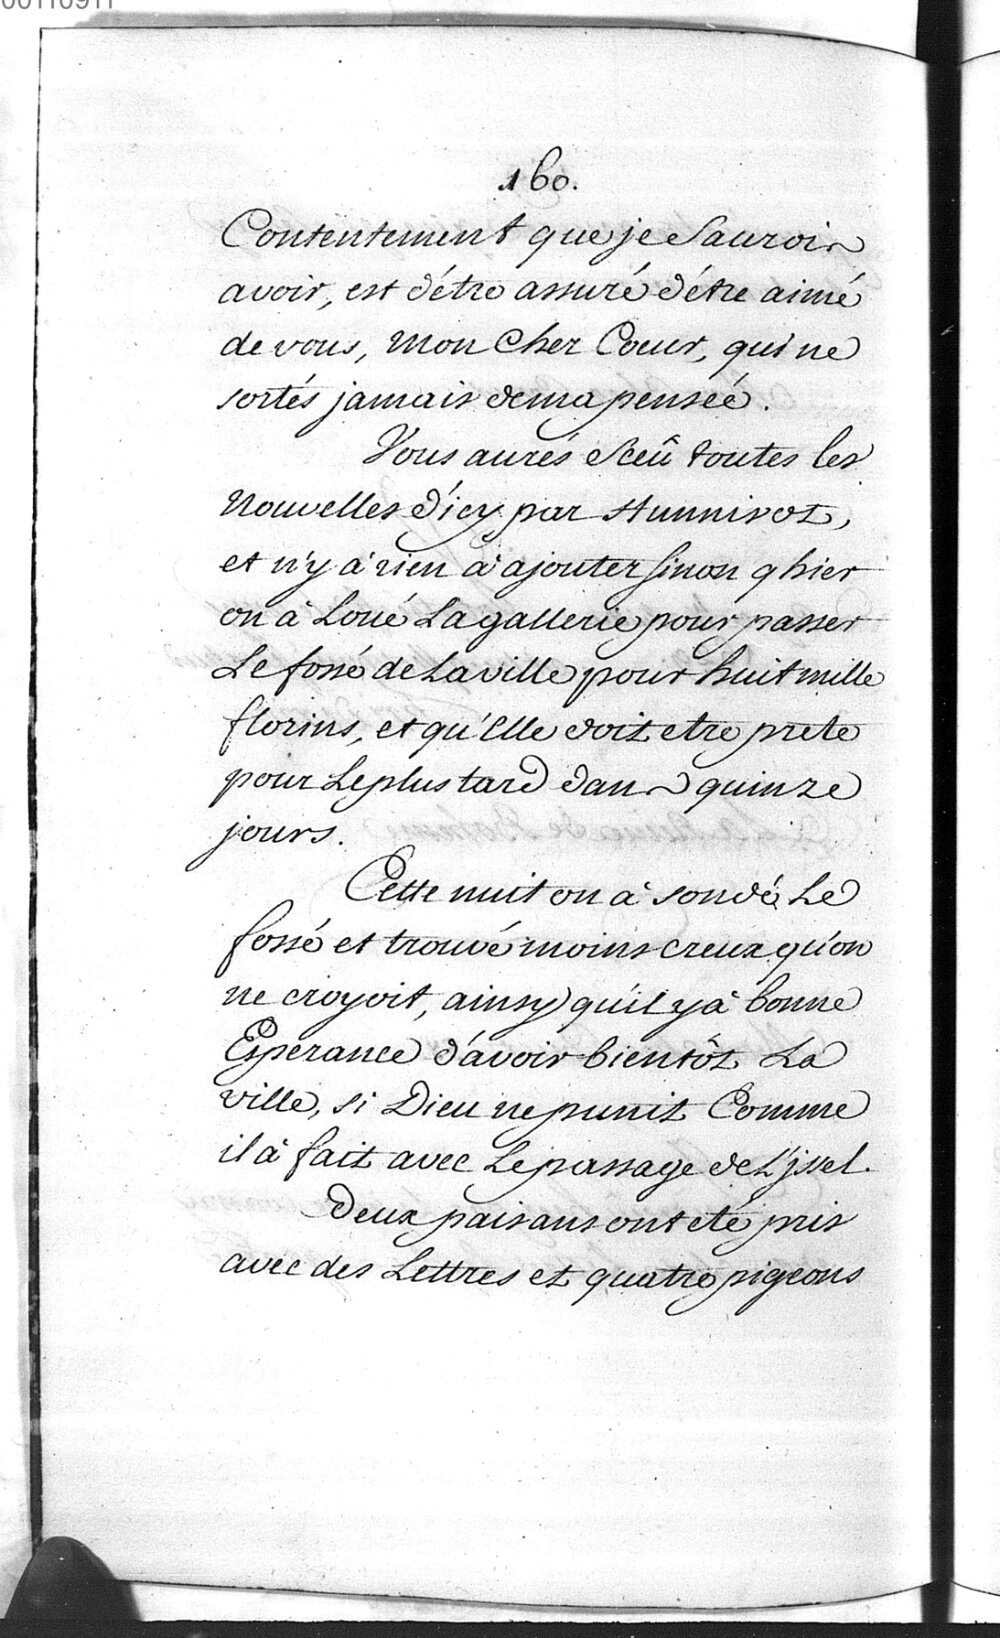 160.
Contentement que je Saurois
avoir, est d'étre assuré d'étre aimé
de vous, mon Cher Coeur, qui ne
sortés jamais de ma pensée.
Vous aurés Sceû toutes les
Nouvelles d'icy par Hunnivot,
et n'y à rien à ajouter sinon q hier
on à Loué La gallerie pour passer
Le fossé de La ville pour huit mille
florins, et qu'Elle doit etre prete
pour Le plus tard dans quinze
jours.
Cette nuit on à sondé Le
fossé et trouvé moins creux qu'on
ne croyoit, ainsy qu'il y à bonne
Esperance d'avoir bientôt La
ville, si Dieu ne punit Comme
il à fait avec Le passage de L'jssel.
Deux paisans ont eté pris
avec des Lettres et quatre pigeons